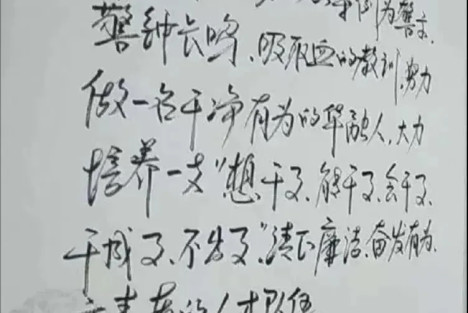 为警示
警钟长鸣、吸取血的教训,努力
做一名干净有为的华融人,大力
培养一支“想干事、能干事、会干事、
干成事、不出事”清正廉洁、奋发有为、
人才队伍